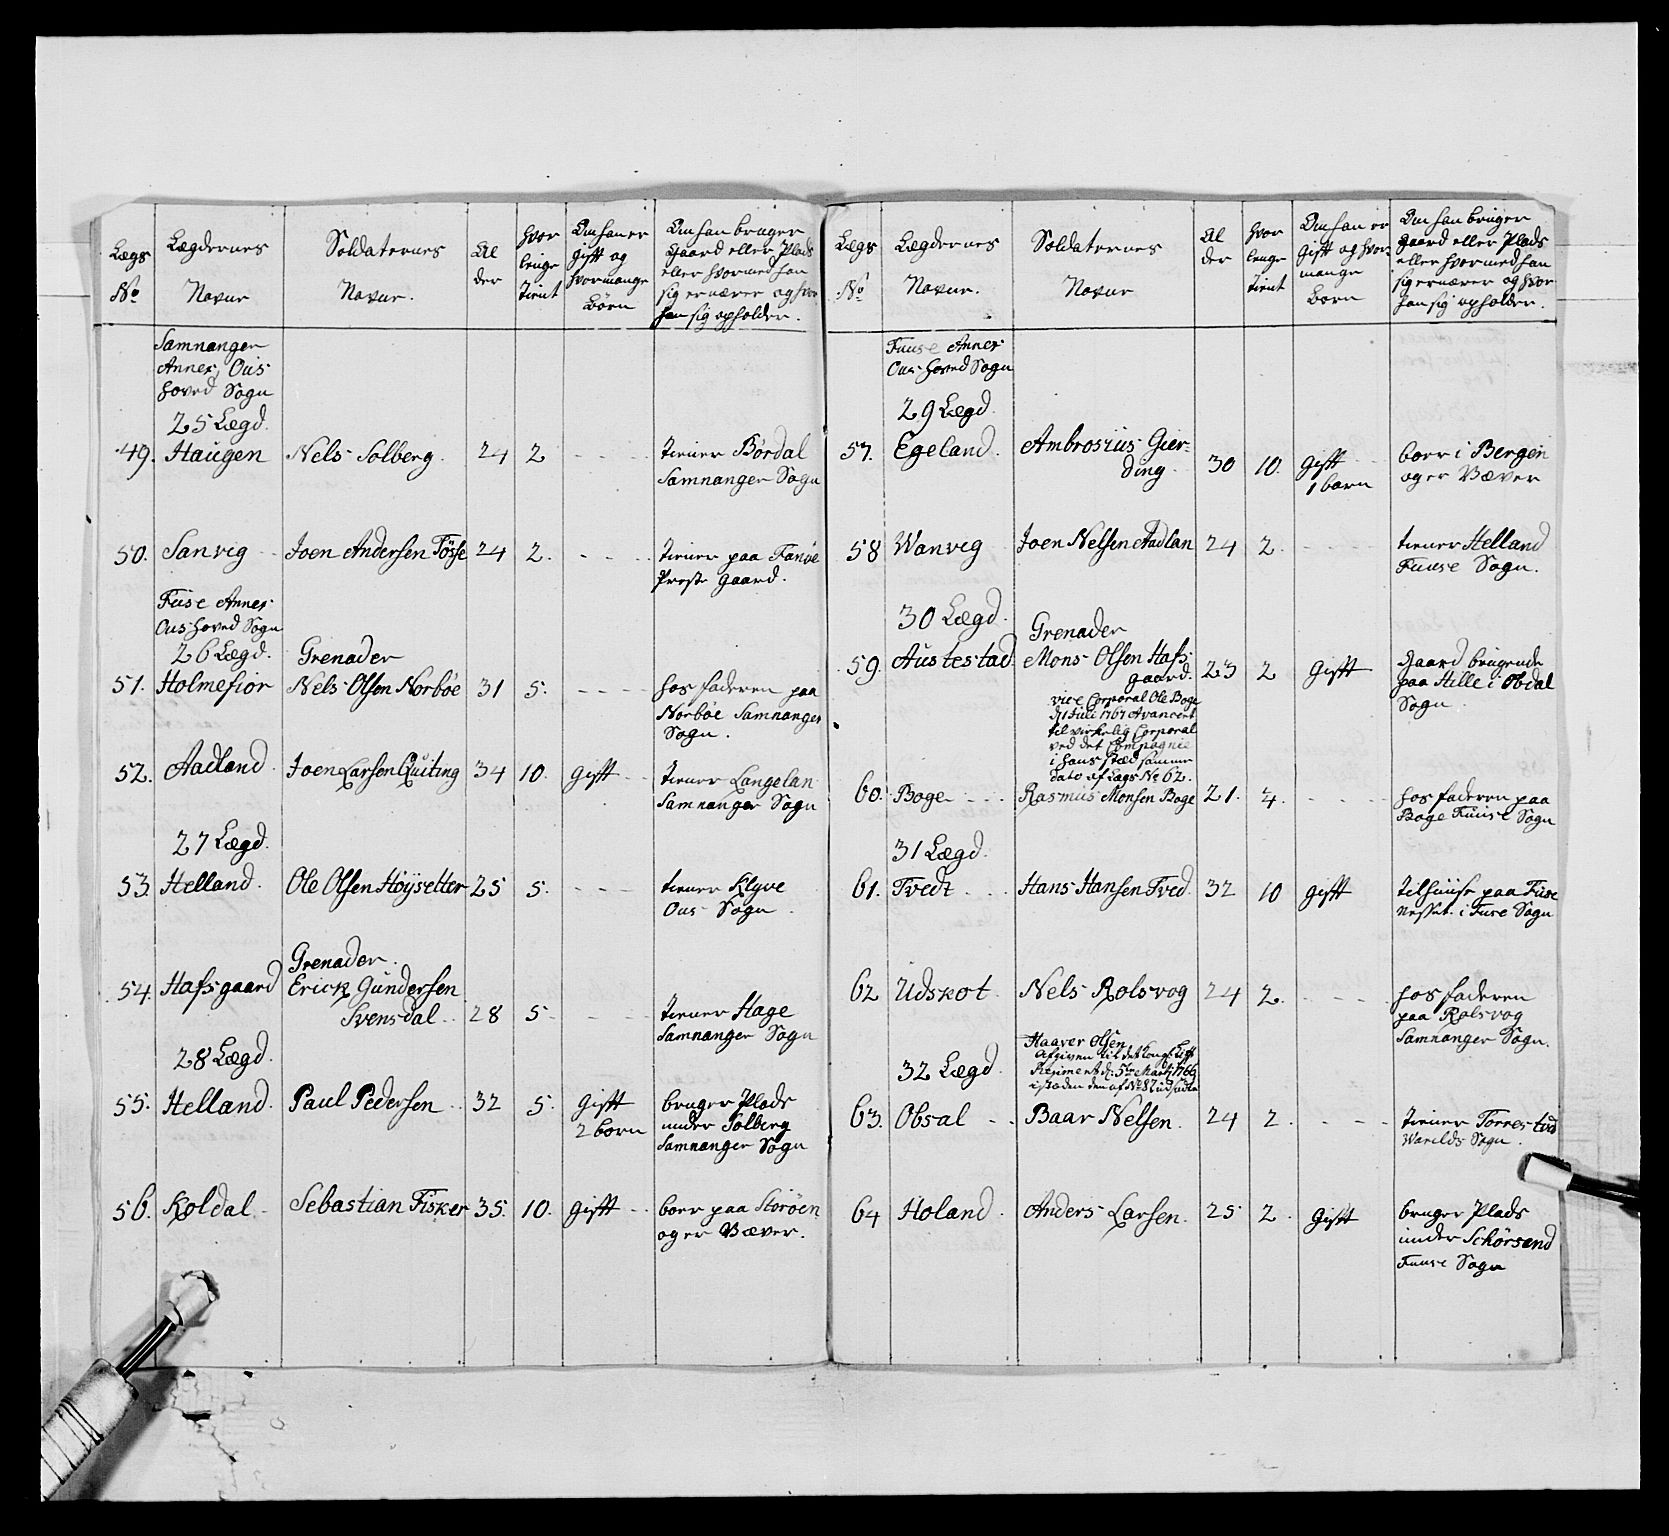 Lægs Lægdernes Soldaternes Al hvor Om han er Om han bruger
No Navne Navne. der lenge gift og Gaard eller Plads
tient hvormange eller hvormed han
Børn sig ernærer og hvor
han sig opholder.
Samnanger
Annex, Ous
hoved Sogn
25 Lægd.
49. Haugen Nels Solberg. 24 2 - - - tiener Børdal
Samnanger Sogn
50. Sanvig - - Joen Andersen Tøsse 24 2. - - - tiener paa Fanøe
Prestegaard.
Fuse Annex
Ous hoved Sogn
26 Lægd. Grenader
51. Holmefior Nels Olsen Norbøe 31 5. - - - - hos faderen paa
Norbøe Samnanger
Sogn.
52. Aadland. Joen Larsen Quiting 34 10. gift - - tiener Langelan
Samnanger Sogn
27 Lægd.
53. Helland. Ole Olsen Høysetter 25 5. - - - tiener Klyve
Ous Sogn.
Grenader.
54. Hafsgaard Erick Gundersen
Svensdal.. 28 5. - - tiener Hage
Samnanger Sogn
28 Lægd.
55. Helland. Paul Pedersen.. 32 5. gift bruger Plads
2 born under Solberg
Samnanger Sogn
56. Koldal - Sebastian Fisker 35. 10. gift - - boer paa Storøen
og er Væver.
Lægs Lægdernes Soldaternes Al hvor Om han er Om han bruger
No Navne. Navne der lenge gift og hvor Gaard eller Plads
tient mange eller hvormed han
Born sig ernærer og hvor
han sig opholder.
Fuuse Annex
Ous hoved Sogn
29 Lægd.
57. Egeland. Ambrosius Gier-
ding. 30 10. gift boer i Bergen
1 barn og er Væver
58 Wanvig Joen Nelsen Aadlan 24 2. - - - tiener Helland
Fuuse Sogn.
30 Lægd. Grenader
59. Austestad. Mons Olsen Hafs-
gaard. 23 2 Gift Gaard brugende
paa Hille i Obdal
Sogn.
vice Corporal Ole Boge
d 1 Juli 1767 Avancert
til virkelig Corporal
ved det Compagnie
i hans stæd samme
dato af Lægs No 62.
60. Boge - - - Rasmus Monsen Boge 21. 4. - - - - hos faderen paa
Boge Fuuse Sogn
31 Lægd.
61. Tvedt - - - Hans Hansen Tved. 32 10 gift tilhuuse paa Fuse
nesset i Fuse Sogn
62 Udskot. Nels Rolsvog 24 2. - - - hos faderen
paa Rolsvog
Samnanger Sogn.
Haaver Olsen
32 Lægd. afgiven til det
Regiment d: 5te Martj 1766
istæden den af No 87 udsadte
63. Obsal - - Baar Nelsen. 24 2. - - - tiener Torres tved
Warilds Sogn.
64 Holand. Anders Larsen. 25 2. Gift bruger Plads
under Schørsand
Fuuse Sogn